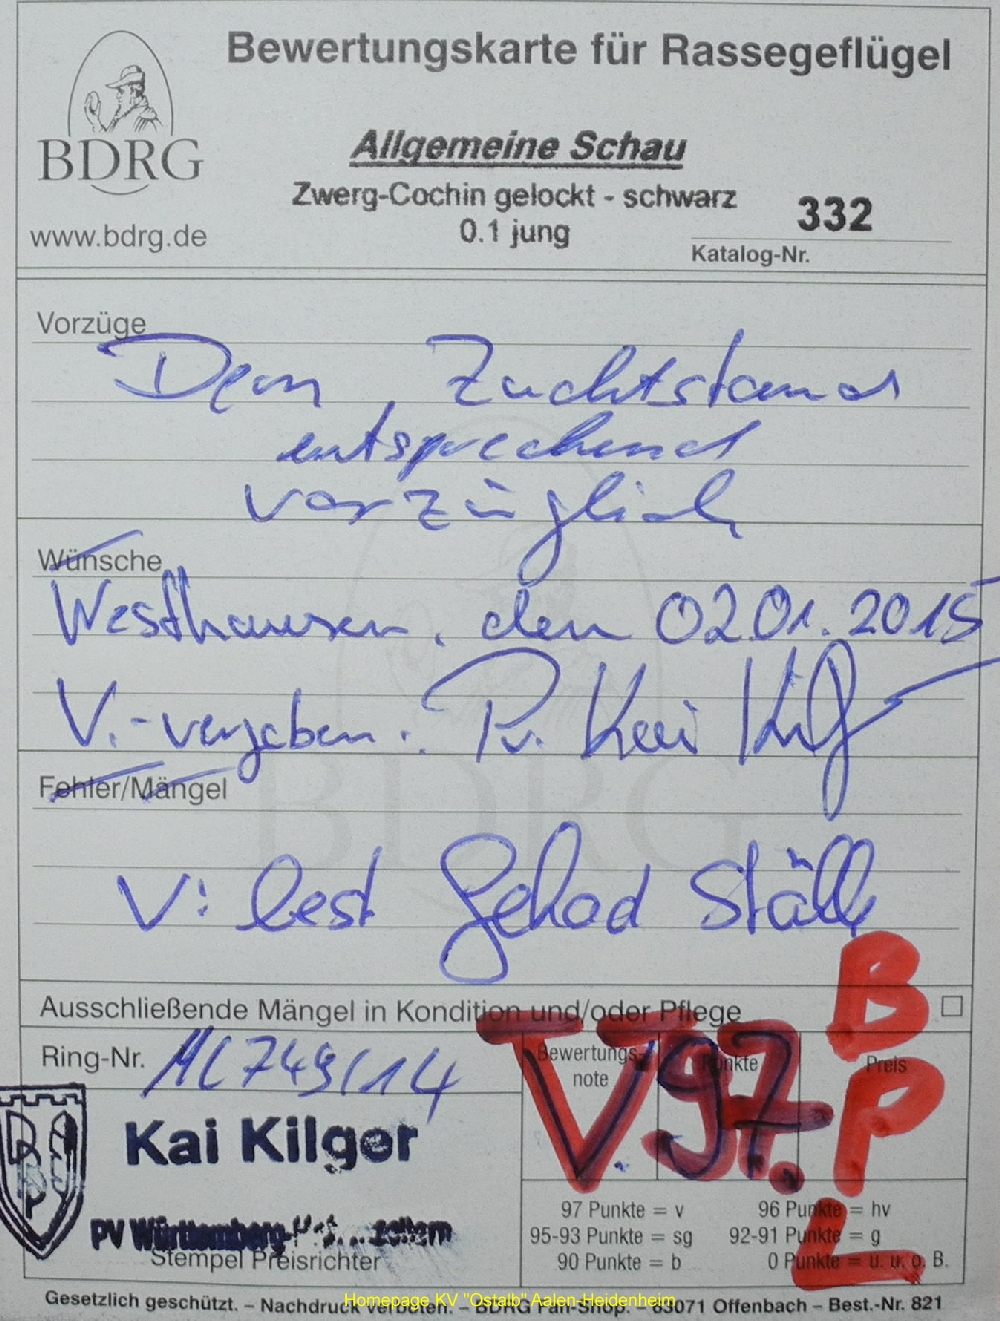 Bewertungskarte für Rassegeflügel
BDRG
www.bdrg.de
Allgemeine Schau
Zwerg-Cochin gelockt - schwarz
0.1 jung
332
Katalog-Nr.
Vorzüge
Dem Zuchtstand
entsprechend
vorzüglich
Wünsche
Westhausen, den 02.01.2015
V.-vergeben: Pr. Kai
Fehler/Mängel
V: lest
Ausschließende Mängel in Kondition und/oder Pflege
Ring-Nr.
749/14
Bewertungs-
note
Punkte
Preis
V 97.
BPL
Kai Kilger
PV Württemberg-
Stempel Preisrichter
97 Punkte = v 96 Punkte = hv
95-93 Punkte = sg 92-91 Punkte = g
90 Punkte = b 0 Punkte = u. u. o. B.
Gesetzlich geschützt. – Nachdruck verboten. – BDRG Fan-Shop. – 63071 Offenbach – Best.-Nr. 821
Homepage KV "Ostalb" Aalen-Heidenheim